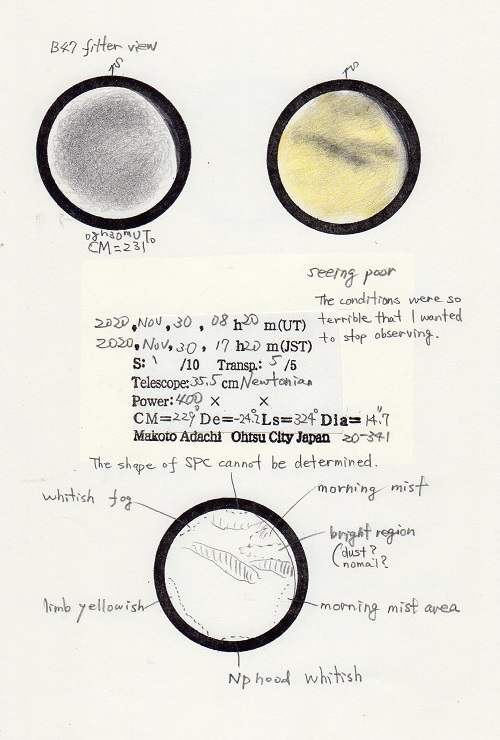 B47 filter view
S
S
08h30mUT
CM=231°
seeing poor
The conditions were so
terrible that I wanted
to stop observing.
2020, Nov, 30, 08 h20 m(UT)
2020, Nov, 30, 17 h20 m(JST)
S: 1 /10 Transp.: 5 /5
Telescope: 35.5 cm Newtonian
Power: 400 × ×
CM=229° De=-24.2° Ls=324° Dia=14.7"
Makoto Adachi Ohtsu City Japan 20-341
The shape of SPC cannot be determined.
whitish fog
morning mist
bright region
(dust?
nomal?
limb yellowish
morning mist area
Np hood whitish